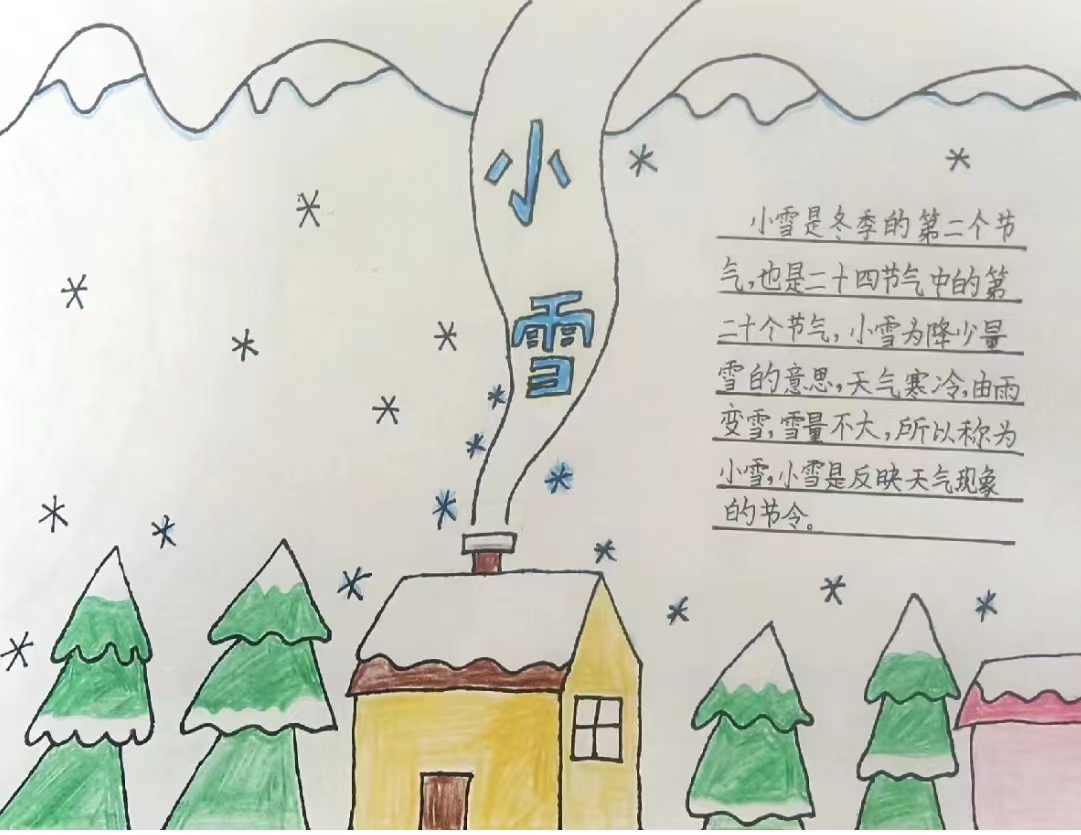 小
雪
小雪是冬季的第二个节
气,也是二十四节气中的第
二十个节气,小雪为降少量
雪的意思,天气寒冷,由雨
变雪,雪量不大,所以称为
小雪,小雪是反映天气现象
的节令。